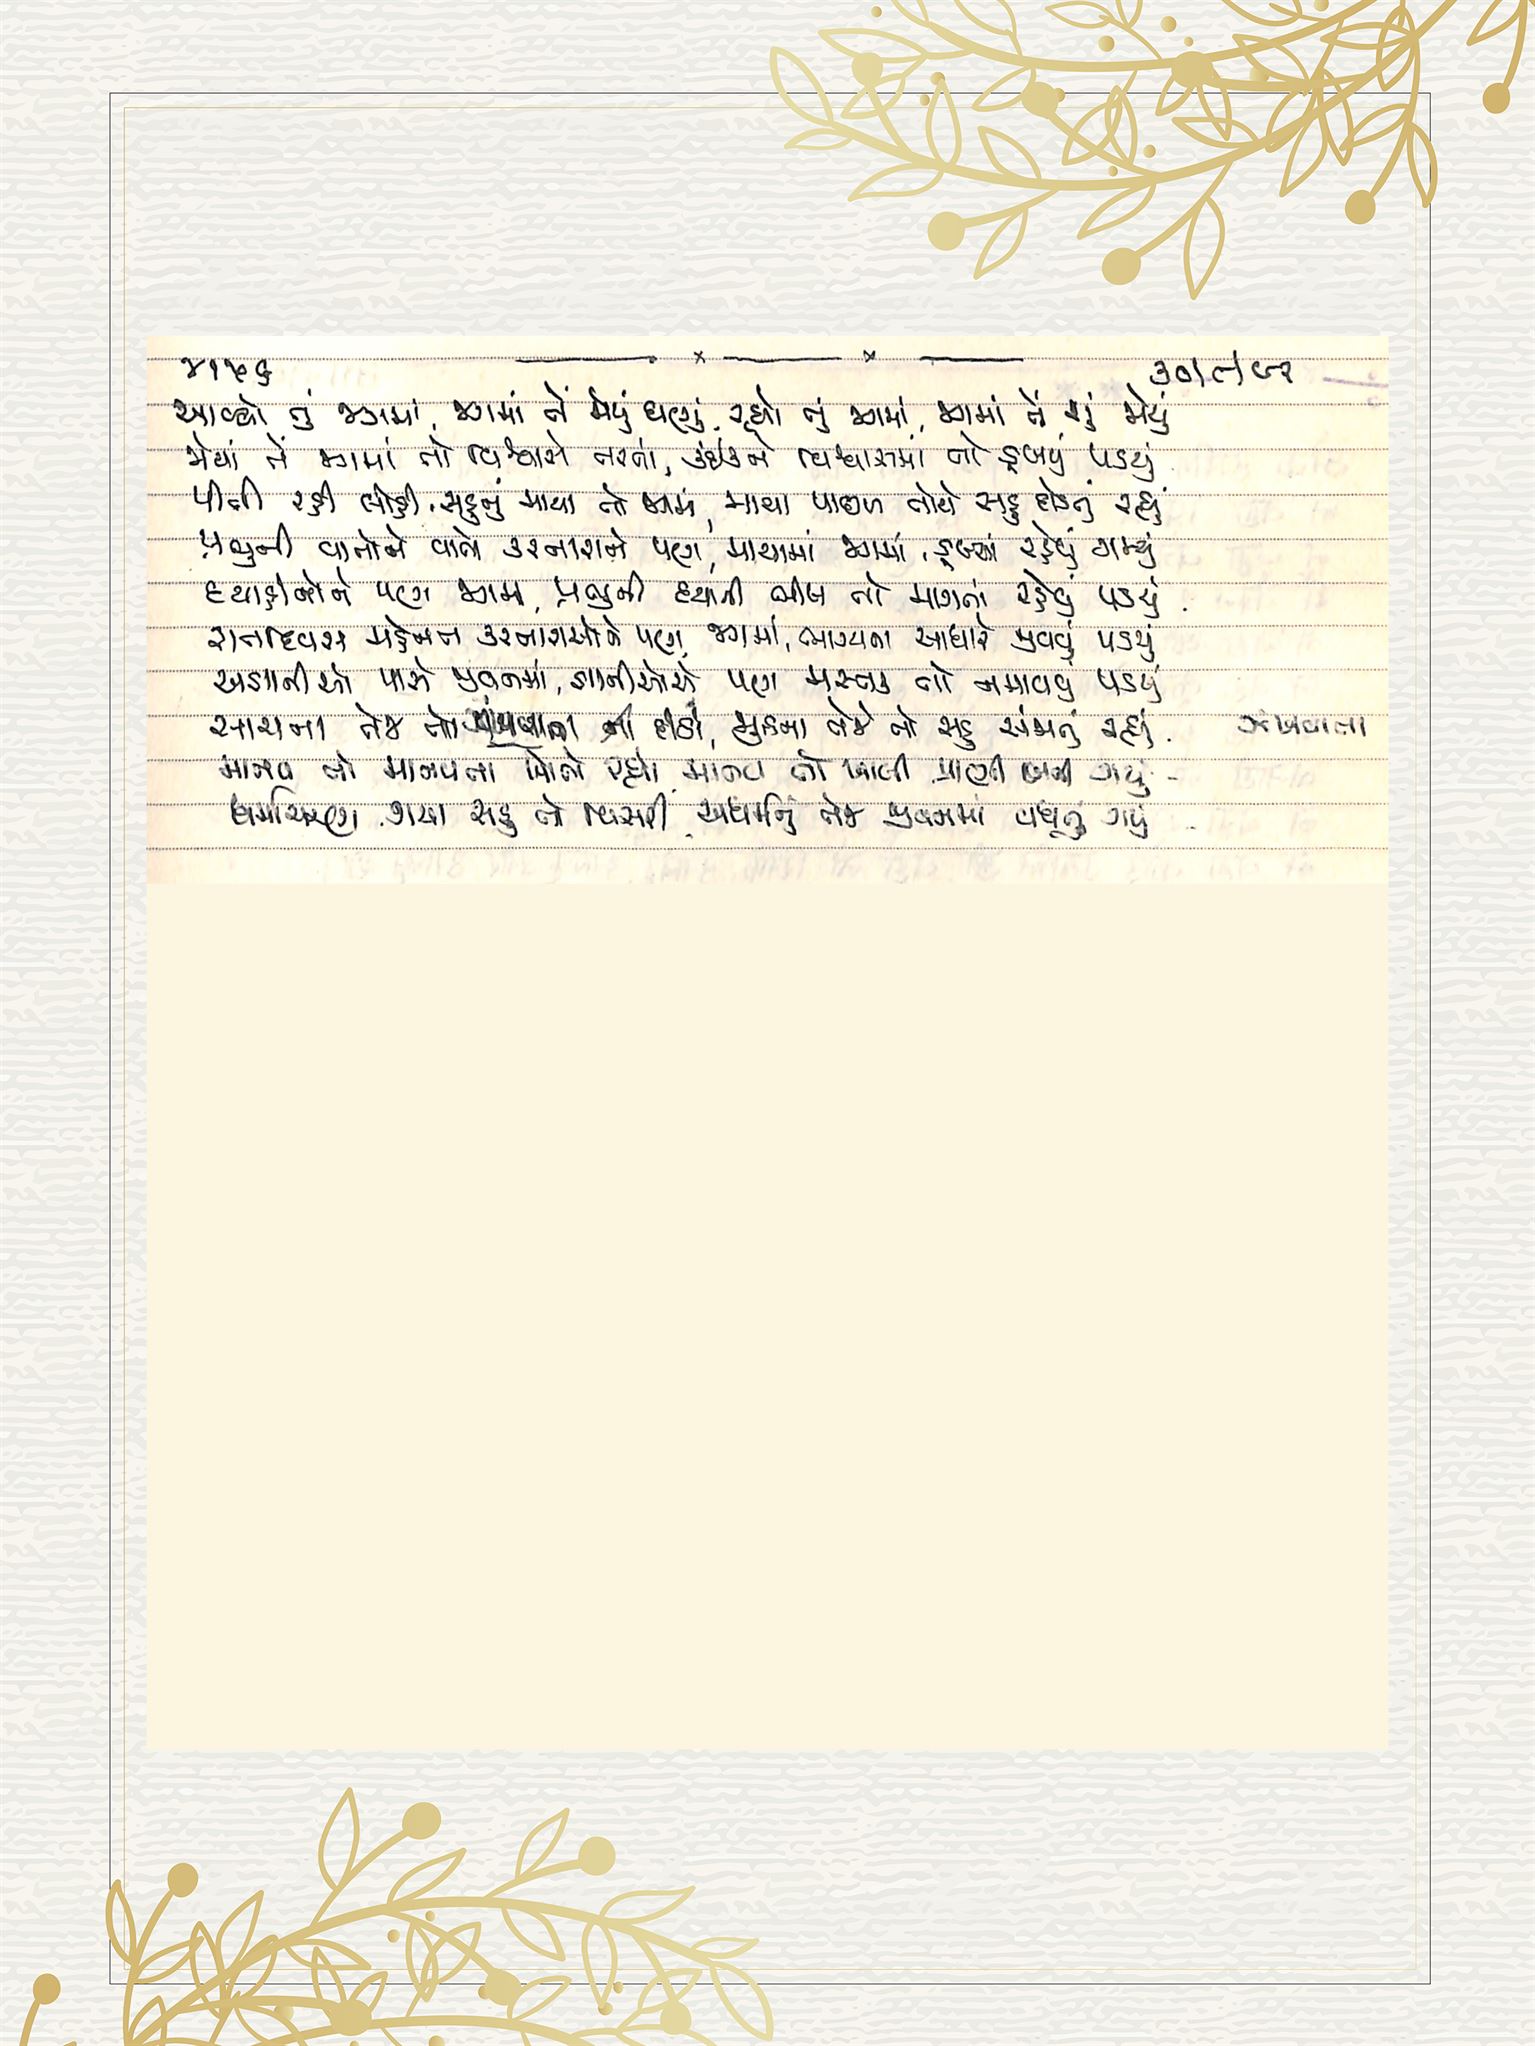 ૪૧૫૬ ૩૦/૮/૯૨
આવ્યો તું જગમાં, જગમાં તેં મેળવ્યું ઘણું, રહ્યો તું જગમાં, જગમાં તેં શું જોયું
જોયાં તેં જગમાં તો વિશ્વાસે તરતાં, કંઈકને વિશ્વાસમાં તો ડૂબવું પડયું
પીતી રહી લોહી, સહુનું માયા તો જગમાં, માયા પાછળ તોયે સહુ દોડતું રહ્યું
પ્રભુની વાતોને વાતો કરનારાને પણ, માયામાં જગમાં, ડૂબતાં રહેવું ગમ્યું
દયાહીનોને પણ જગમાં, પ્રભુની દયાની ભીખ તો માગતાં રહેવું પડયું
રાતદિવસ મહેનત કરનારાઓને પણ જગમાં, ભાગ્યના આધારે જીવવું પડયું
અજ્ઞાનીઓ પાસે જીવનમાં, જ્ઞાનીઓએ પણ મસ્તક તો નમાવવું પડયું
સાચના તેજ તો ના દીઠાં, જુઠના તેજે તો સહુ અંજાતું રહ્યું ઝંખવાતા
માનવ તો માનવતા રહ્યો માનવ તો ખાલી પ્રાણી બની ગયું
ગયા સહુ તો વિસરી, અધર્મનું તેજ જીવનમાં વધતું ગયું